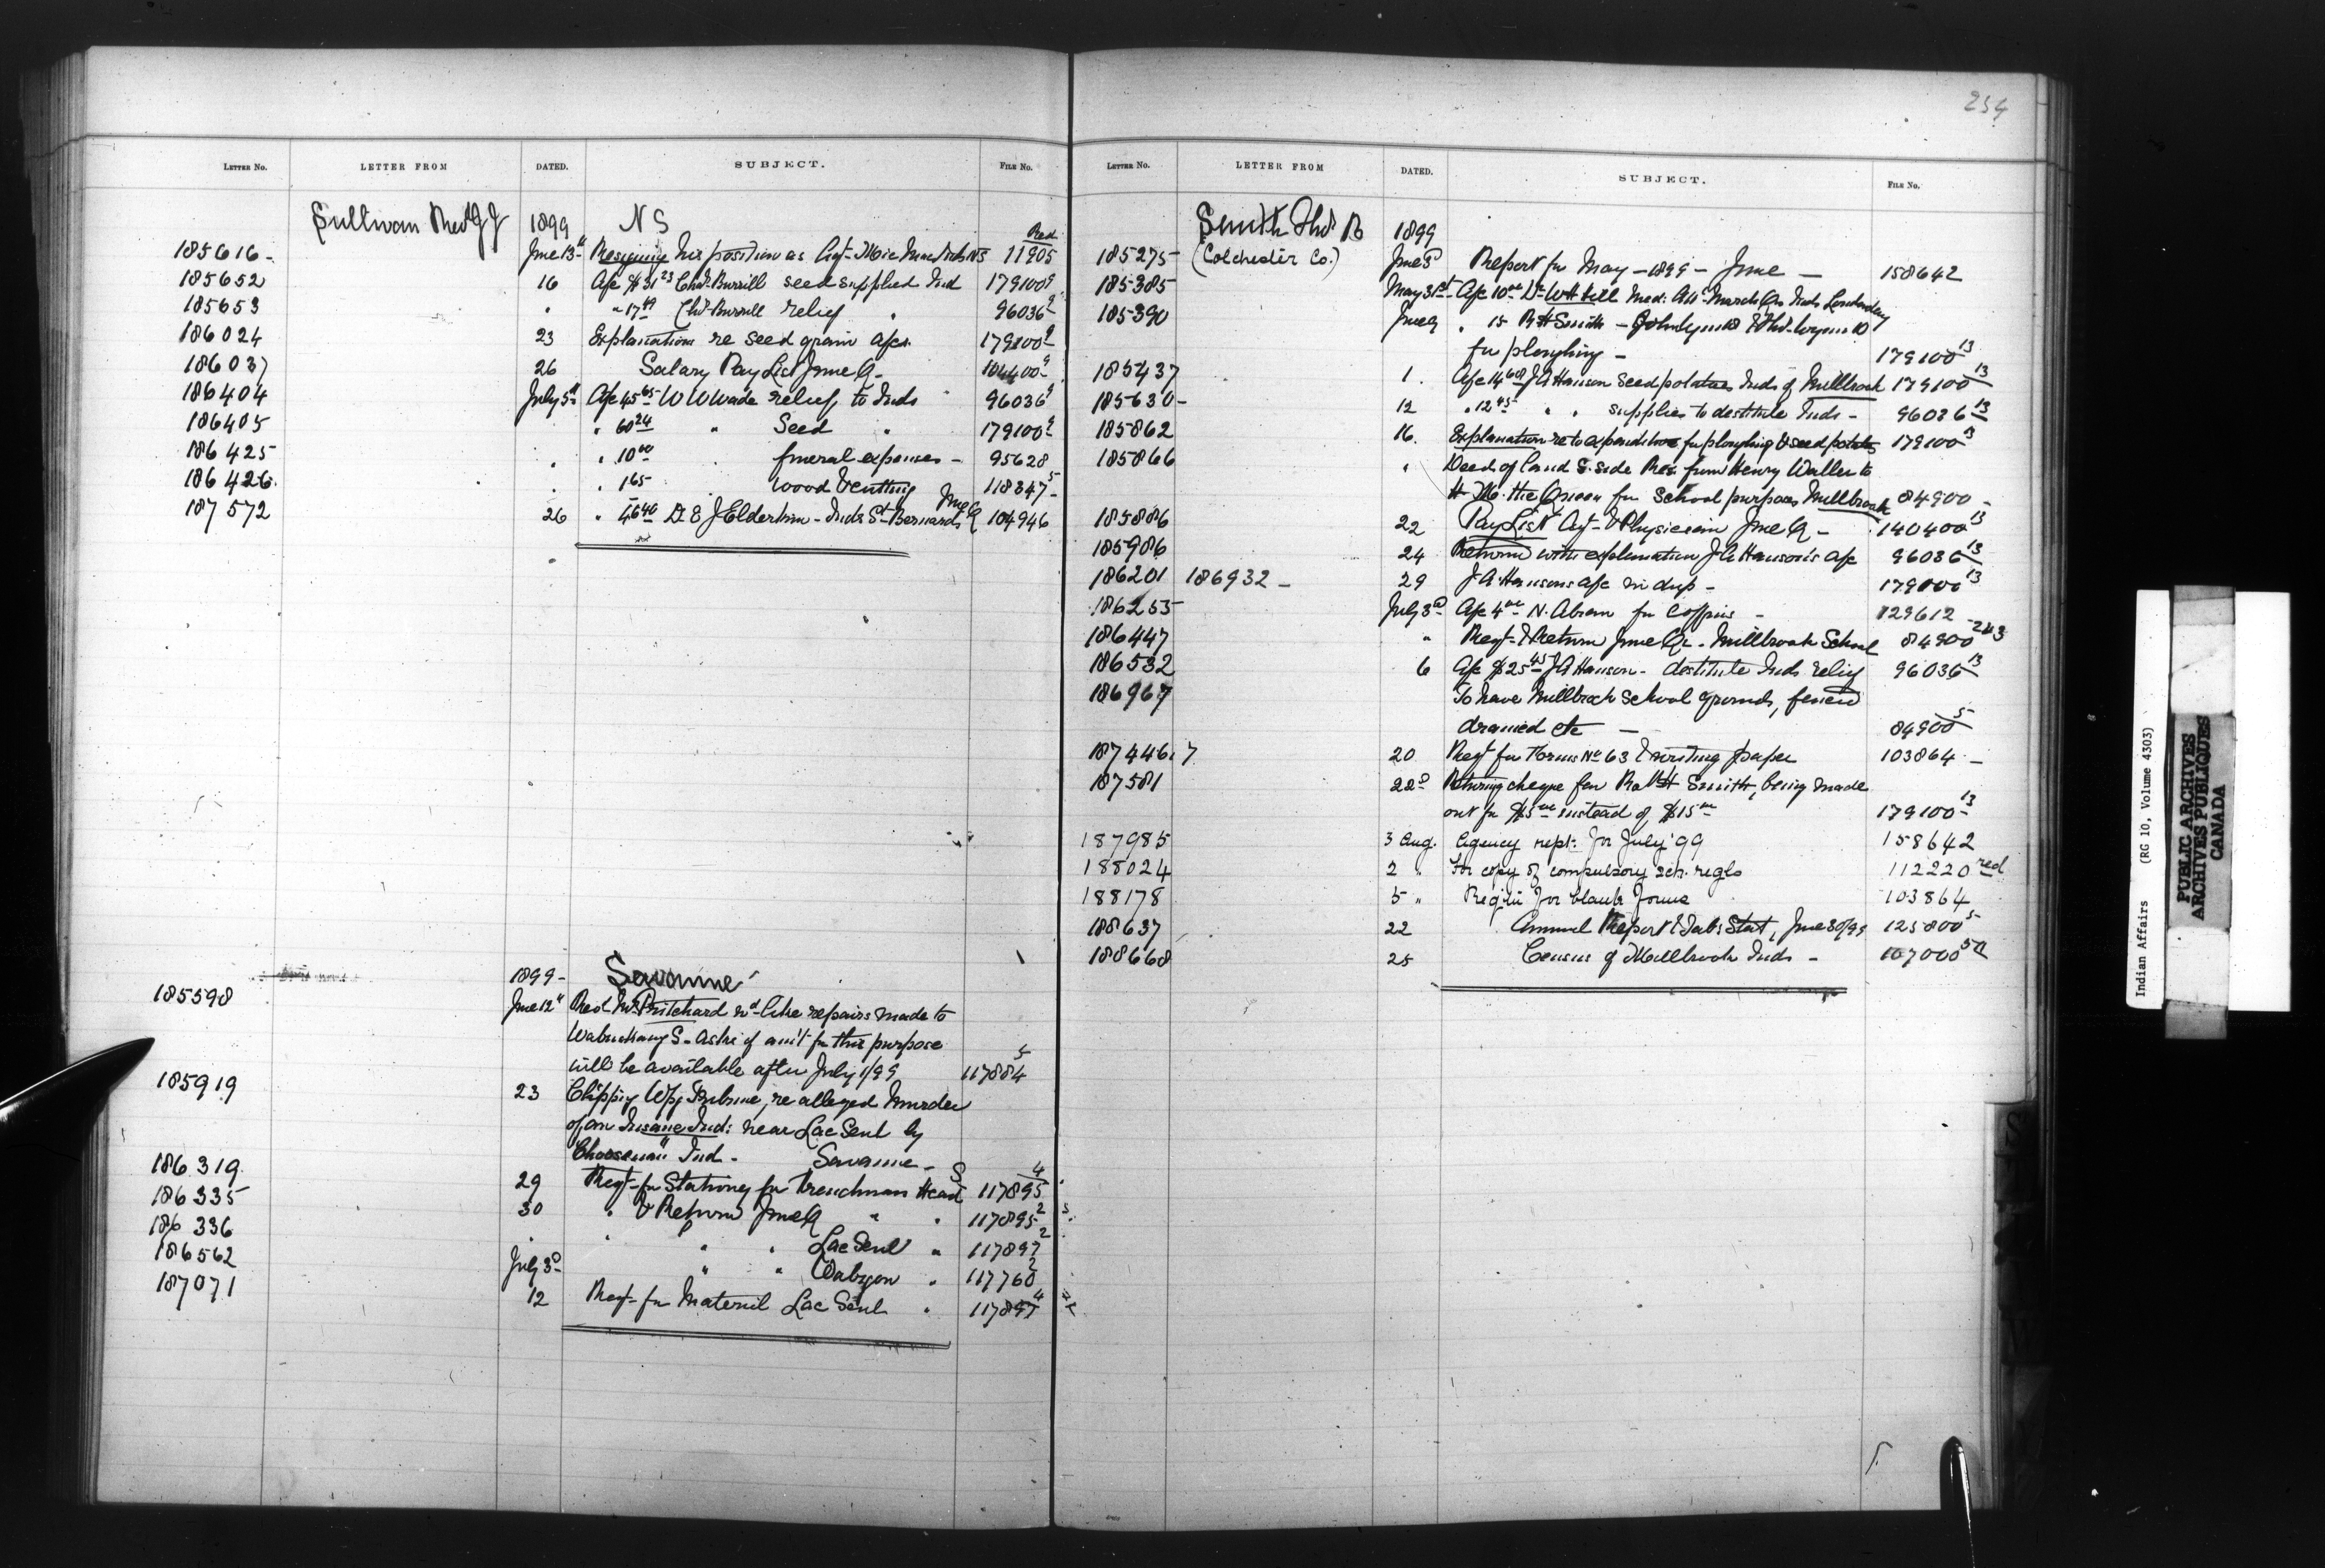 254
LETTER No. LETTER FROM DATED. SUBJECT. FILE No.
Sullivan Rev J J 1899 N S
185616 - June 13th Resigning his position as Agt- Mic Mac Inds NS Red 11905
185652 16 A/c $31 23 Chs. Burrill seed supplied Ind 179100 9
185653 " " 17 49 Chs Burrill relief " 96036 9
186024 23 Explanations re seed grain a/cs. 179100 9
186037 26 Salary Pay List June Q - 104400 9
186404 July 5th A/c 45 65 W W Wade relief to Inds 96036 9
186405 " 60 24 " Seed " 179100 9
186425 " " 10 00 " funeral expenses - 95628
186426 . " 1 65 . wood & cutting 118347 5
187572 26 " 46 40 Dr E J Elderkin - Inds St Bernards June Q 104946
1899 - Savanne
185598 June 12th Red Mr Pritchard wd like repairs made to
Wabuskang S - asks if am't for this purpose
will be available after July 1/99 117884 5
185919 23 Clipping Wpg Tribune, re alleged Murder
of an Insane Ind: near Lac Seul by
"Chooseman" Ind - Savanne - 4
186319 29 Reqt- for Stationery for Frenchman Head S 117895
186335 30 " & Return June Q " " 117895 2
186336 " " " " Lac Seul " 117897 2
186562 July 3d " " Wabigon " 117760 2
187071 12 Reqt- for Material Lac Seul " 117897 4
LETTER No. LETTER FROM DATED. SUBJECT. FILE No.
Smith Thos B 1899
185275 (Colchester Co.) June 3d Report for May - 1899 - June - 158642
185385 May 31st A/c 10 00 Dr W H Hill Med: Att: March Qr Inds Londonderry
185390 June 9 " 15 R H Smith - John Lynn &
for ploughing - 179100 13
185437 1. A/c 14 60 J A Hanson seed potatoes Inds of Millbrook 179100 13
185630 - 12 " 12 45 " " supplies to destitute Inds - 96036 13
185862 16. Explanation re to expenditure for ploughing & seed potatoes 179100 13
185866 " Deed of land S. side Res. from Henry Waller to
H. M. the Queen for School purposes Millbrook 84900 -
185886 22 Pay List Agt- & Physician June Q - 140400 13
185986 24 Returns with explanation J A Hanson's a/c 96036 13
186201 186932 - 29 J A Hansons a/c in dup - 179000 13
186255 July 3d A/c 4 00 N. Abram for Coffins - 129612
186447 " Reqt- & Return June Qr - Millbrook School 84900 - 2&3
186532 6 A/c $25 45 J A Hanson - destitute Inds relief 96036 13
186967 To have Millbrook School grounds, fenced
drained etc - 84900 5
187446.7 20 Reqt for Forms No 63 & writing paper 103864 -
187581 22d Returning cheque for Robt H Smith, being made
out for $5 00 instead of $15 00 179100 13
187985 3 Aug. Agency rept: for July '99 158642
188024 2 " For copy of compulsory sch. regls 112220 red
188178 5 " Reqtn for blank forms 103864
188637 22 Annual Report & Tab: Stat, June 30/99 125800 5
188668 25 Census of Millbrook Inds - 107000
Indian Affairs (RG 10, Volume 4303)
PUBLIC ARCHIVES
ARCHIVES PUBLIQUES
CANADA